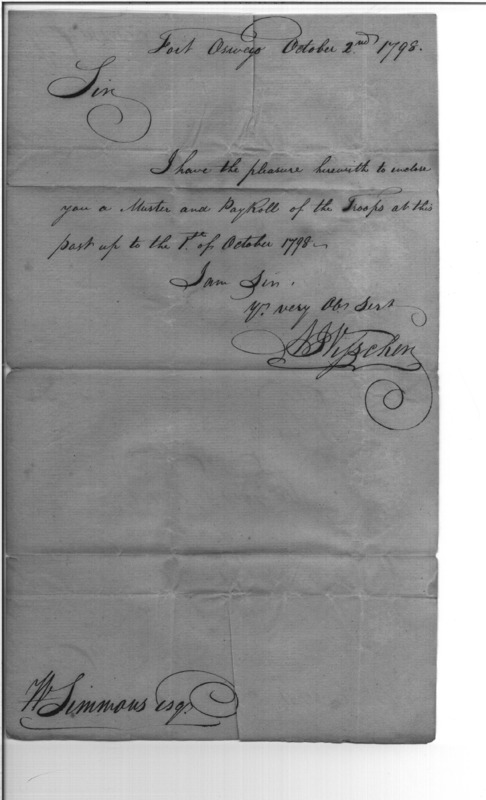 Fort Oswego October 2nd 1798.
Sir
I have the pleasure herewith to enclose
you a Muster and PayRoll of the Troops at this
post up to the 1st of October 1798
I am Sir.
Yr. very Ob Sert
Visscher
W Simmons esqr.